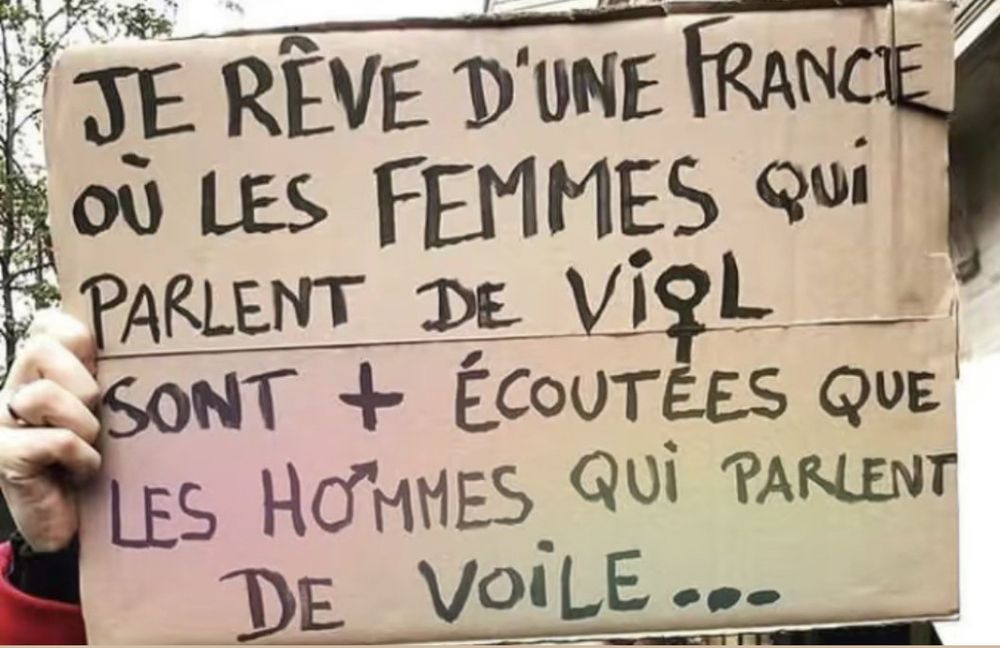 JE RÊVE D'UNE FRANCE
OÙ LES FEMMES QUI
PARLENT DE VIOL
SONT + ÉCOUTÉES QUE
LES HOMMES QUI PARLENT
DE VOILE...